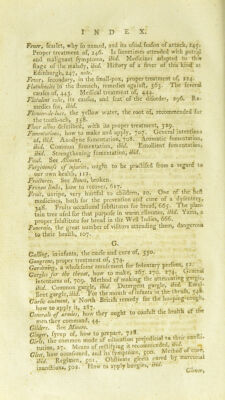 INDEX.
Fever, scarlet, why so named, and its usual season of attack, 245.
Proper treatment of, 246. Is sometimes attended with putrid
and malignant symptoms, ibid. Medicines adapted to this
stage of the malady, ibid. History of a fever of this kind at
Edinburgh, 247, note.
Fever, secondary, in the small-pox, proper treatment of, 224.
Flatulencies in the stomach, remedies against, 363. The several
causes of, 445. Medical treatment of, 444.
Flatulent colic, its causes, and seat of the disorder, 296. Re-
medies for, ibid.
Flower-de-luce, the yellow water, the root of, recommended for
the tooth-ach, 358.
Fluor albus described, with its proper treatment, 529.
Fomentations, how to make and apply, 707. General intentions
of, ibid. Anodyne fomentation, 708. Aromatic fomentation,
ibid. Common fomentation, ibid. Emollient fomentation,
ibid. Strengthening fomentation, ibid.
Food. See Aliment.
Forgiveness of injuries, ought to be practised from a regard to
our own health, 112.
Fractures. See Bones, broken.
Frozen limbs, how to recover, 617.
Fruit, unripe, very hurtful to children, 20. One of the best
medicines, both for the prevention and cure of a dysentery,
348. Fruits occasional substitutes for bread, 665. The plan-
tain tree used for that purpose in warm climates, ibid. Yams, a
proper substitute for bread in the West Indies, 666.
Funerals, the great number of visitors attending them, dangerous
to their health, 107.
G.
Galling, in infants, the cause and cure of, 550.
Gangrene, proper treatment of, 574.
Gardening, a wholesome amusement for sedentary persons, 52.
Gargles for the throat, how to make, 267. 270. 274. General
intentions of, 709. Method of making the attenuating gargle,
ibid. Common gargle, ibid. Detergent gargle, ibid. Emol-
lient gargle, ibid. For the mouth of infants in the thrush, 548.
Garlic ointment, a North British remedy for the hooping-cough,
how to apply it, 287.
Generals of armies, how they ought to consult the health of the
men they command, 44.
Gilders. See Miners.
Ginger, syrup of, how to prepare, 728.
Girls, the common mode of education prejudicial to their consti-
tution, 27. Means of rectifying it recommended, ibid.
Gleet, how occasioned, and its symptoms, 500. Method of cure,
ibid. Regimen, 501. Obstinate gleets cured by mercurial
inunctions, 502. How to apply bougies, ibid.